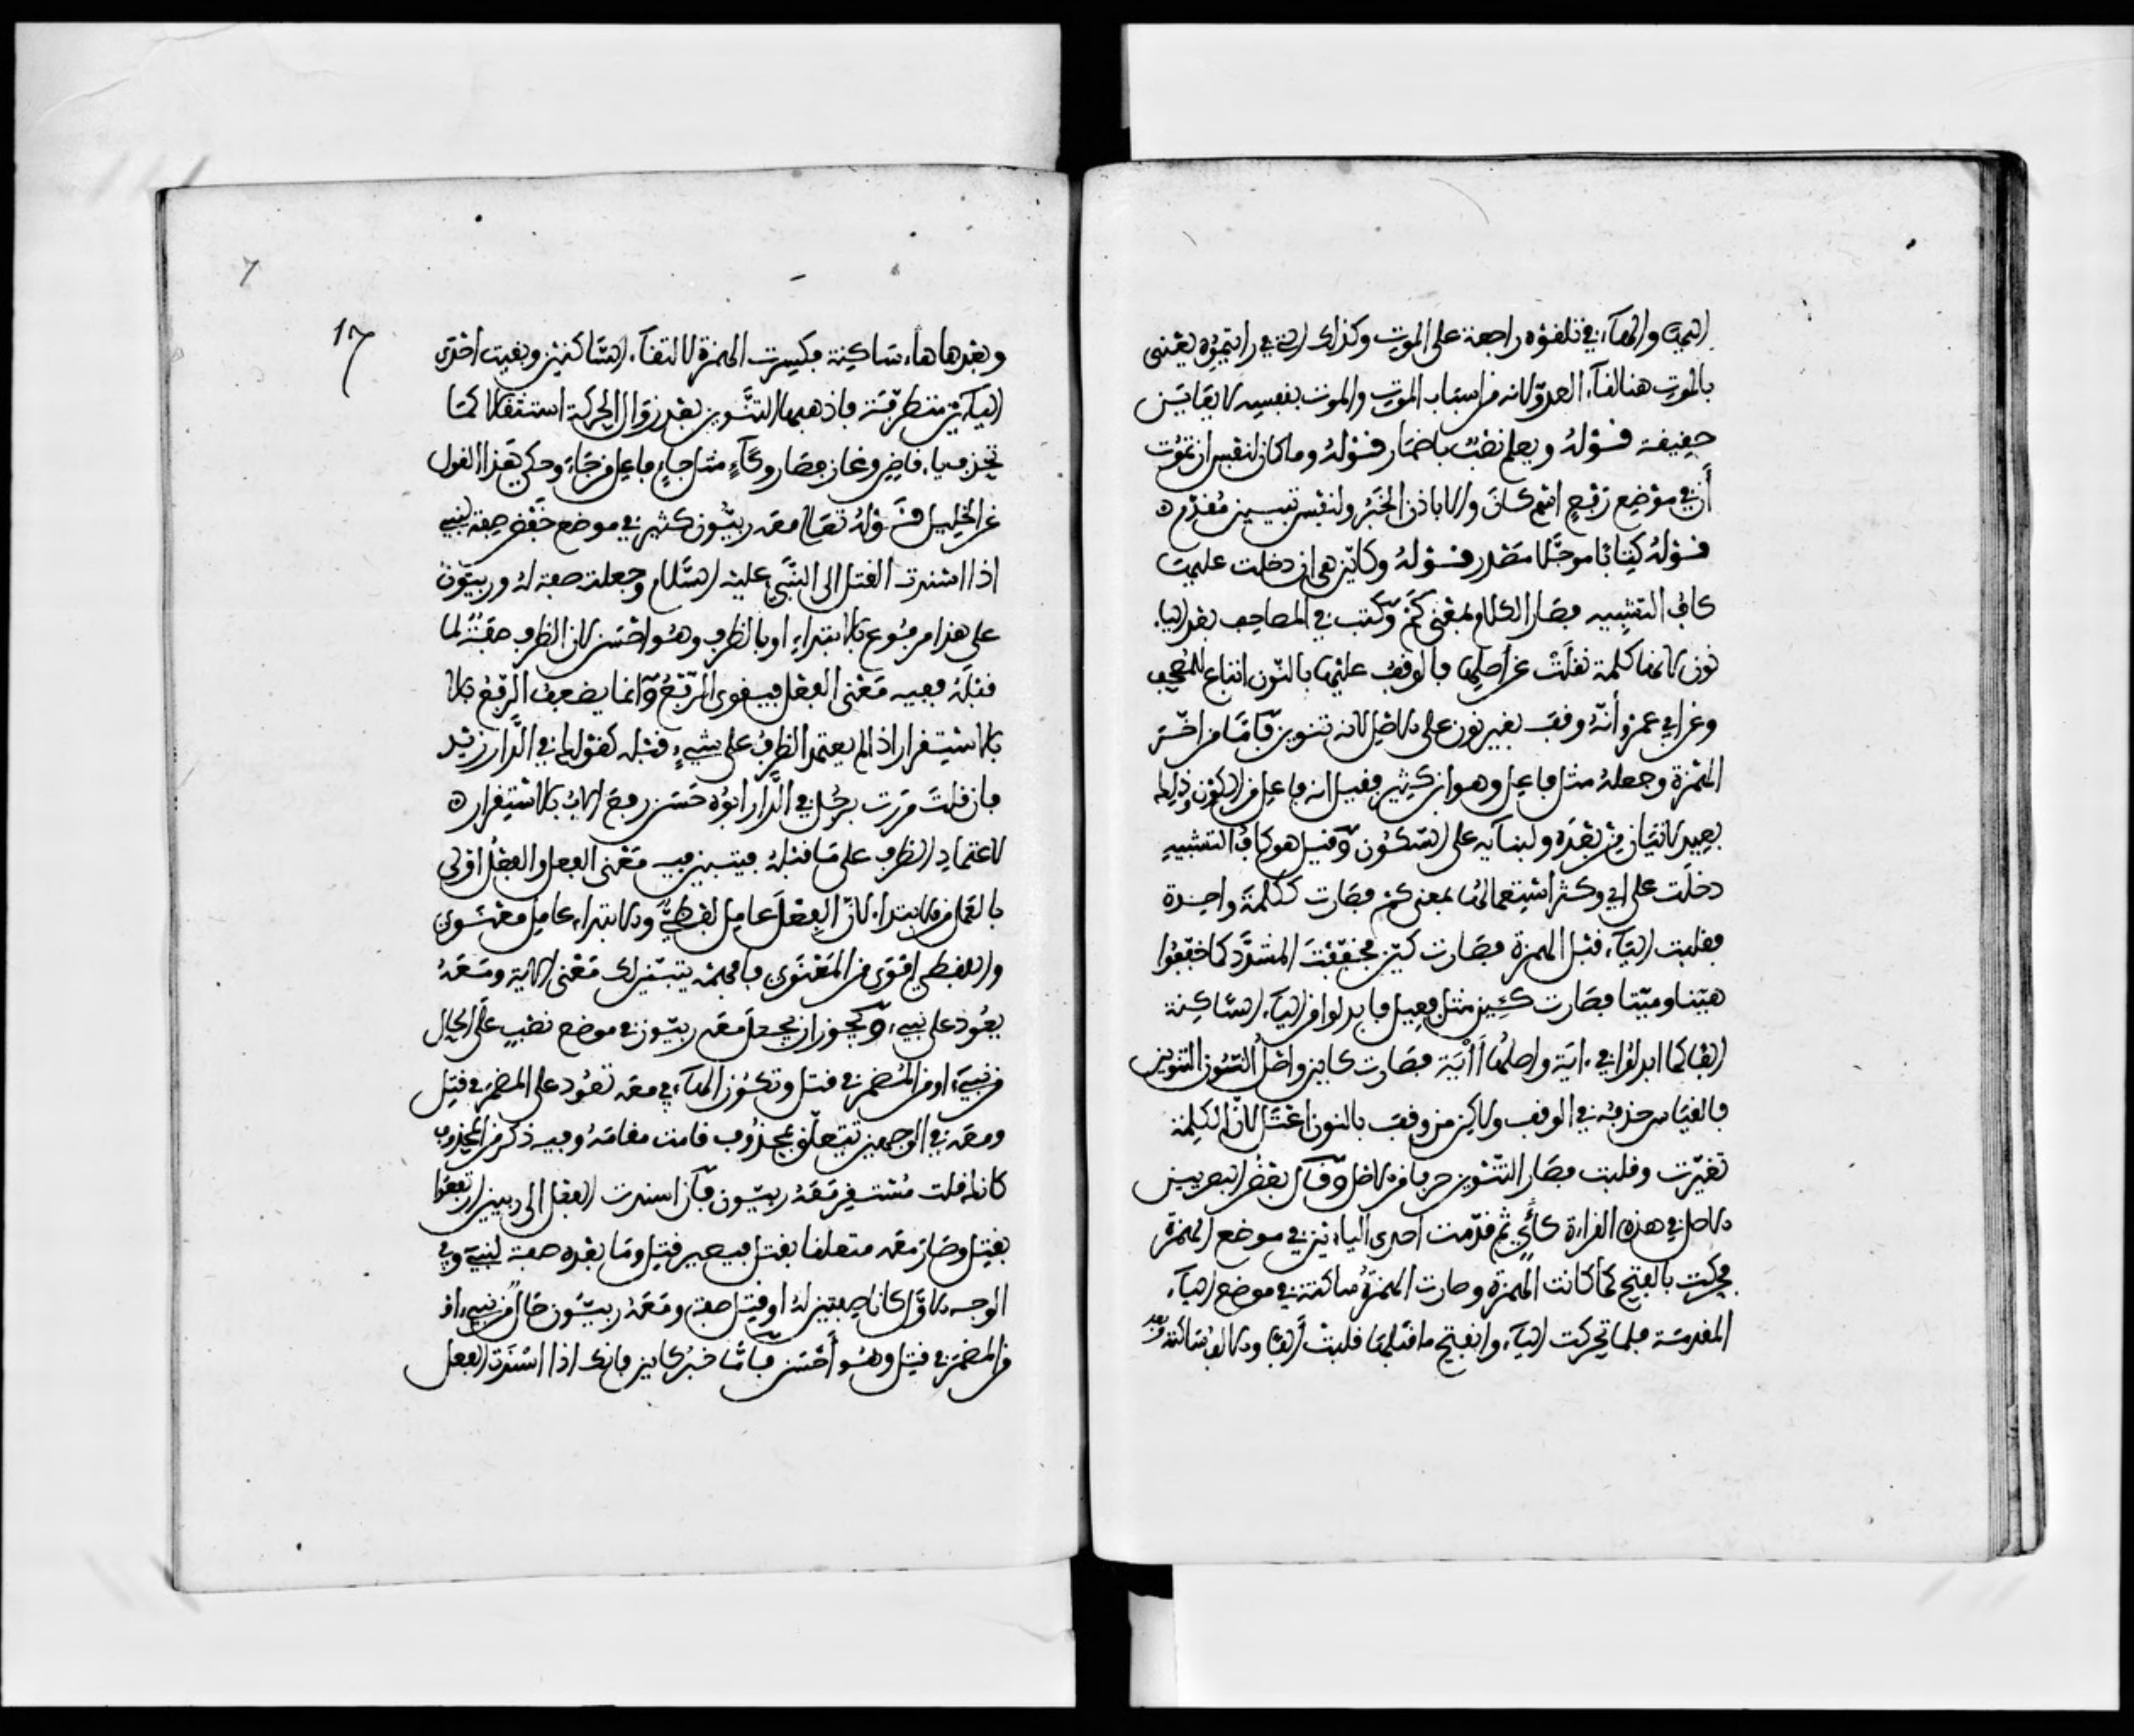 التي والهاء في تلقوه راجعة على الموت وكذلك التي في رايتموه يعني
بالموت هنا لقاء العدو لانه من اسباب الموت والموت بنفسه لا يعاين
حقيقة قوله ويعلم نصب باضمار قوله وما كان لنفس ان تموت
أن في موضع رفع اسم كان والا باذن الخبر ولنفس تبيين مقدم
قوله كتابا موجلا مصدر قوله وكاين هي اي دخلت عليها
كاف التشبيه فصار الكلام بمعنى كم وكتب في المصاحف بعد الياء
نون لانها كلمة نقلت عن أصلها فالوقف عليها بالنون اتباع للمصحف
وعن ابي عمرو أنه وقف بغير نون على الاصل لانه تنوين فاما من اخر
الهمزة وجعله مثل فاعل وهو ابن كثير فقيل انه فاعل من الكون وذلك
بعيد لاتيان من بعده ولبنائه على السكون وقيل هو كاف التشبيه
دخلت على اي وكثر استعمالها بمعنى كم فصارت ككلمة واحدة
فقلبت الياء قبل الهمزة فصارت كين فخففت المشدد كما خففوا
هينا وميتا فصارت كيين مثل فعيل فابدلوا من الياء الساكنة
الفا كما ابدلوا في ءاية واصلها أأية فصارت كاين واصل النون التنوين
فالقياس حذفه في الوقف ولاكن من وقف بالنون اعتل لان الكلمة
تغيرت وقلبت فصار التنوين حرفا من الاصل وقال بعض البصريين
الاصل في هذه القراءة كأي ثم قدمت احدى الياءين في موضع الهمزة
فحركت بالفتح كما كانت الهمزة وصارت الهمزة ساكنة في موضع الياء
المقدمة فلما تحركت الياء وانفتح ما قبلها قلبت ألفا والالف ساكنة
17
7
وبعدها هاء ساكنة فكسرت الهمزة لالتقاء الساكنين وبقيت احدى
الياءين متطرفة فاذهبها التنوين بعد زوال الحركة استثقالا كما
تحذف ياء قاض وغاز فصار وكاء مثل جاء فاعل من جاء وحكي هذا القول
عن الخليل قوله تعالى معه ربيون كثير في موضع خفض صفة لنبيء
اذا اسندت القتل الى النبي عليه السلام وجعلته صفة له وربيون
على هذا مرفوع بالابتداء او بالظرف وهو احسن لان الظرف صفة لما
قبله ففيه معنى الفعل فيقوى الرفع وانما يضعف الرفع بالا
بالاستقرار اذا لم يعتمد الظرف على شيء قبله كقولك في الدار زيد
فان قلت مررت برجل في الدار ابوه حسن رفع الاب بالاستقرار
لاعتماد الظرف على ما قبله فيتبين فيه معنى الفعل والفعل اولى
بالعمل من الابتداء لان الفعل عامل لفظي والابتداء عامل معنوي
واللفظي اقوى من المعنوي فافهمه يتبين لك معنى الاية ومعه
يعود على نبيء ويجوز ان يجعل معه ربيون في موضع نصب على الحال
من نبيء او من المضمر في قتل وتكون الهاء في معه تعود على المضمر في قتل
ومعه في الوجهين تتعلق بمحذوف قامت مقامه وفيه ذكر من المحذوف
كانك قلت مستقر معه ربيون فان اسندت الفعل الى ربيين ارتفعوا
بقتل وصار معه متعلقا بقتل فيصير قتل وما بعده صفة لنبيء وفي
الوجه الاول كانا صفتين له او قتل صفة ومعه ربيون حال من نبيء او
من المضمر في قتل وهو أحسن فاما خبر كاين فانك اذا اسندت الفعل